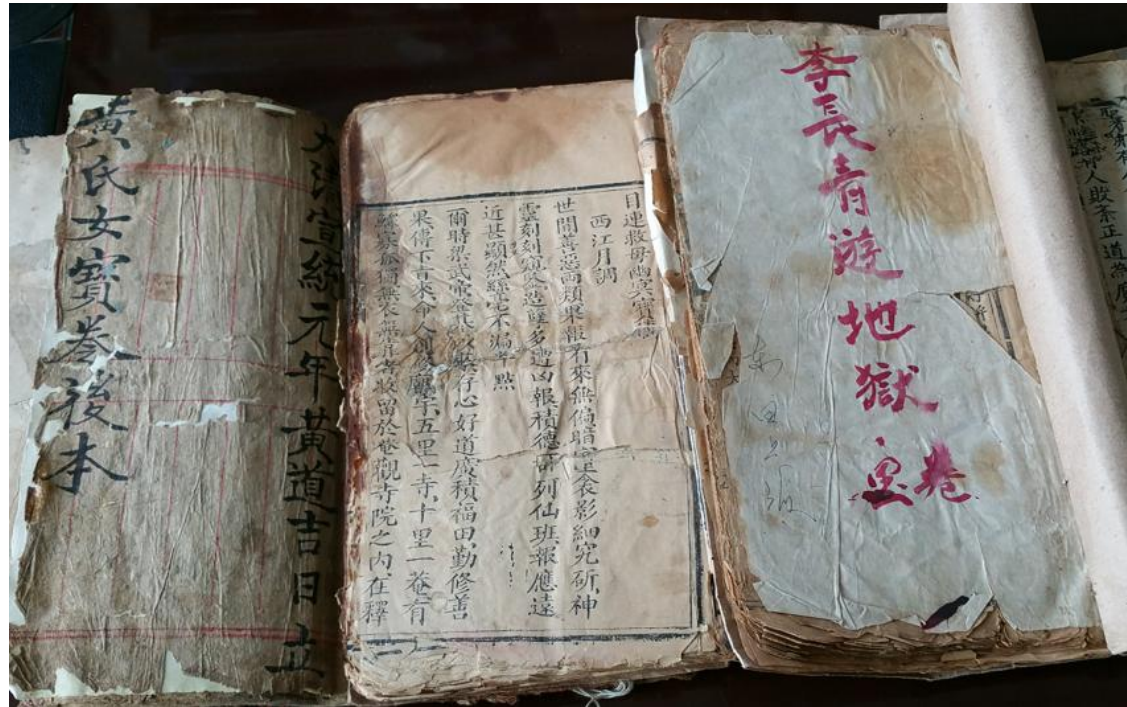 大清宣統元年黃道吉日立
黃氏女寶卷後本
目連救母幽冥寶傳
西江月調
世間善惡兩類果報有來無偏暗室衾影細究研神
靈刻刻窺 造孽多遭凶報積德 列仙班報應遠
近甚顯然絲毫不漏半點
爾時梁武帝登基 存心好道廣積福田勤修善
果傳下旨來命人創修廟宇五里一寺十里一菴有
鰥寡孤獨無衣無食者收留於菴觀寺院之內在釋
李長青游地獄宝卷
人敗紊正道